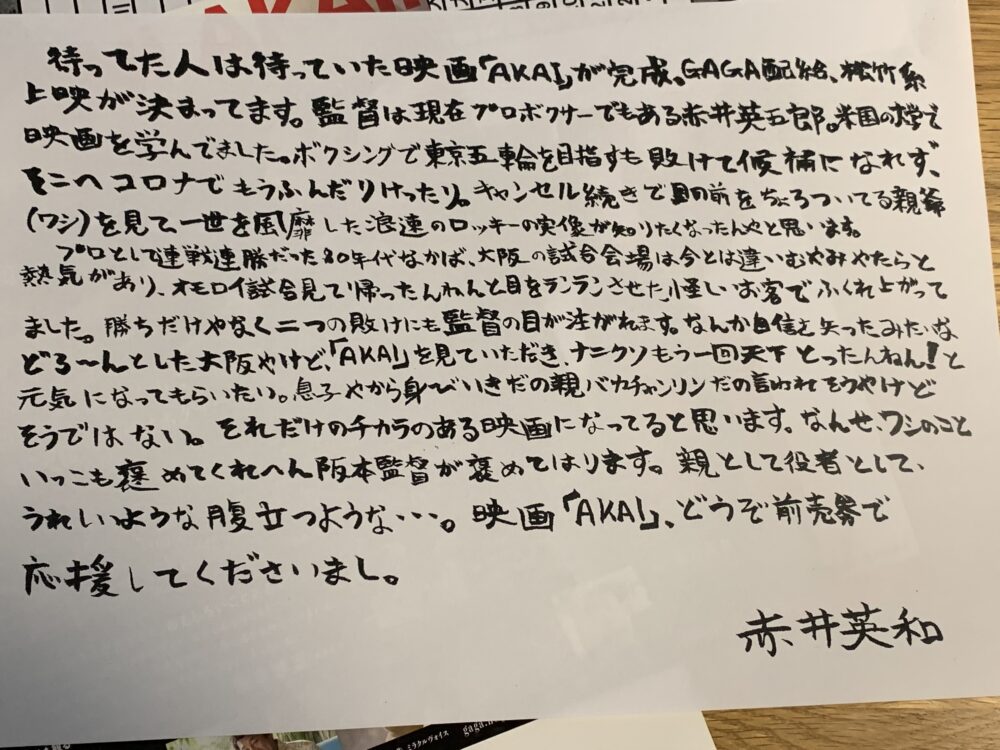 AKAI
待ってた人は待っていた映画「AKAI」が完成。GAGA配給、松竹系
上映が決まってます。監督は現在プロボクサーでもある赤井英五郎。米国の大学で
映画を学んでました。ボクシングで東京五輪を目指すも敗けて候補になれず、
そこへコロナでもうふんだりけったり。キャンセル続きで目の前をちょろついてる親爺
(ワシ)を見て一世を風靡した浪速のロッキーの実像が知りたくなったんやと思います。
プロとして連戦連勝だった80年代なかば、大阪の試合会場は今とは違いむやみやたらと
熱気があり、オモロイ試合見て帰ったんねんと目をランランさせた怪しいお客でふくれ上がって
ました。勝ちだけやなく二つの敗けにも監督の目が注がれます。なんか自信を失ったみたいな
どろ〜んとした大阪やけど、「AKAI」を見ていただき、ナニクソもう一回天下とったんねん!と
元気になってもらいたい。息子やから身びいきだの親バカチャンリンだの言われそうやけど
そうではない。それだけのチカラのある映画になってると思います。なんせ、ワシのこと
いっこも褒めてくれへん阪本監督が褒めてはります。親として役者として、
うれしいような腹立つような…。映画「AKAI」、どうぞ前売券で
応援してくださいまし。
赤井英和
ミラクルヴォイス gaga.n